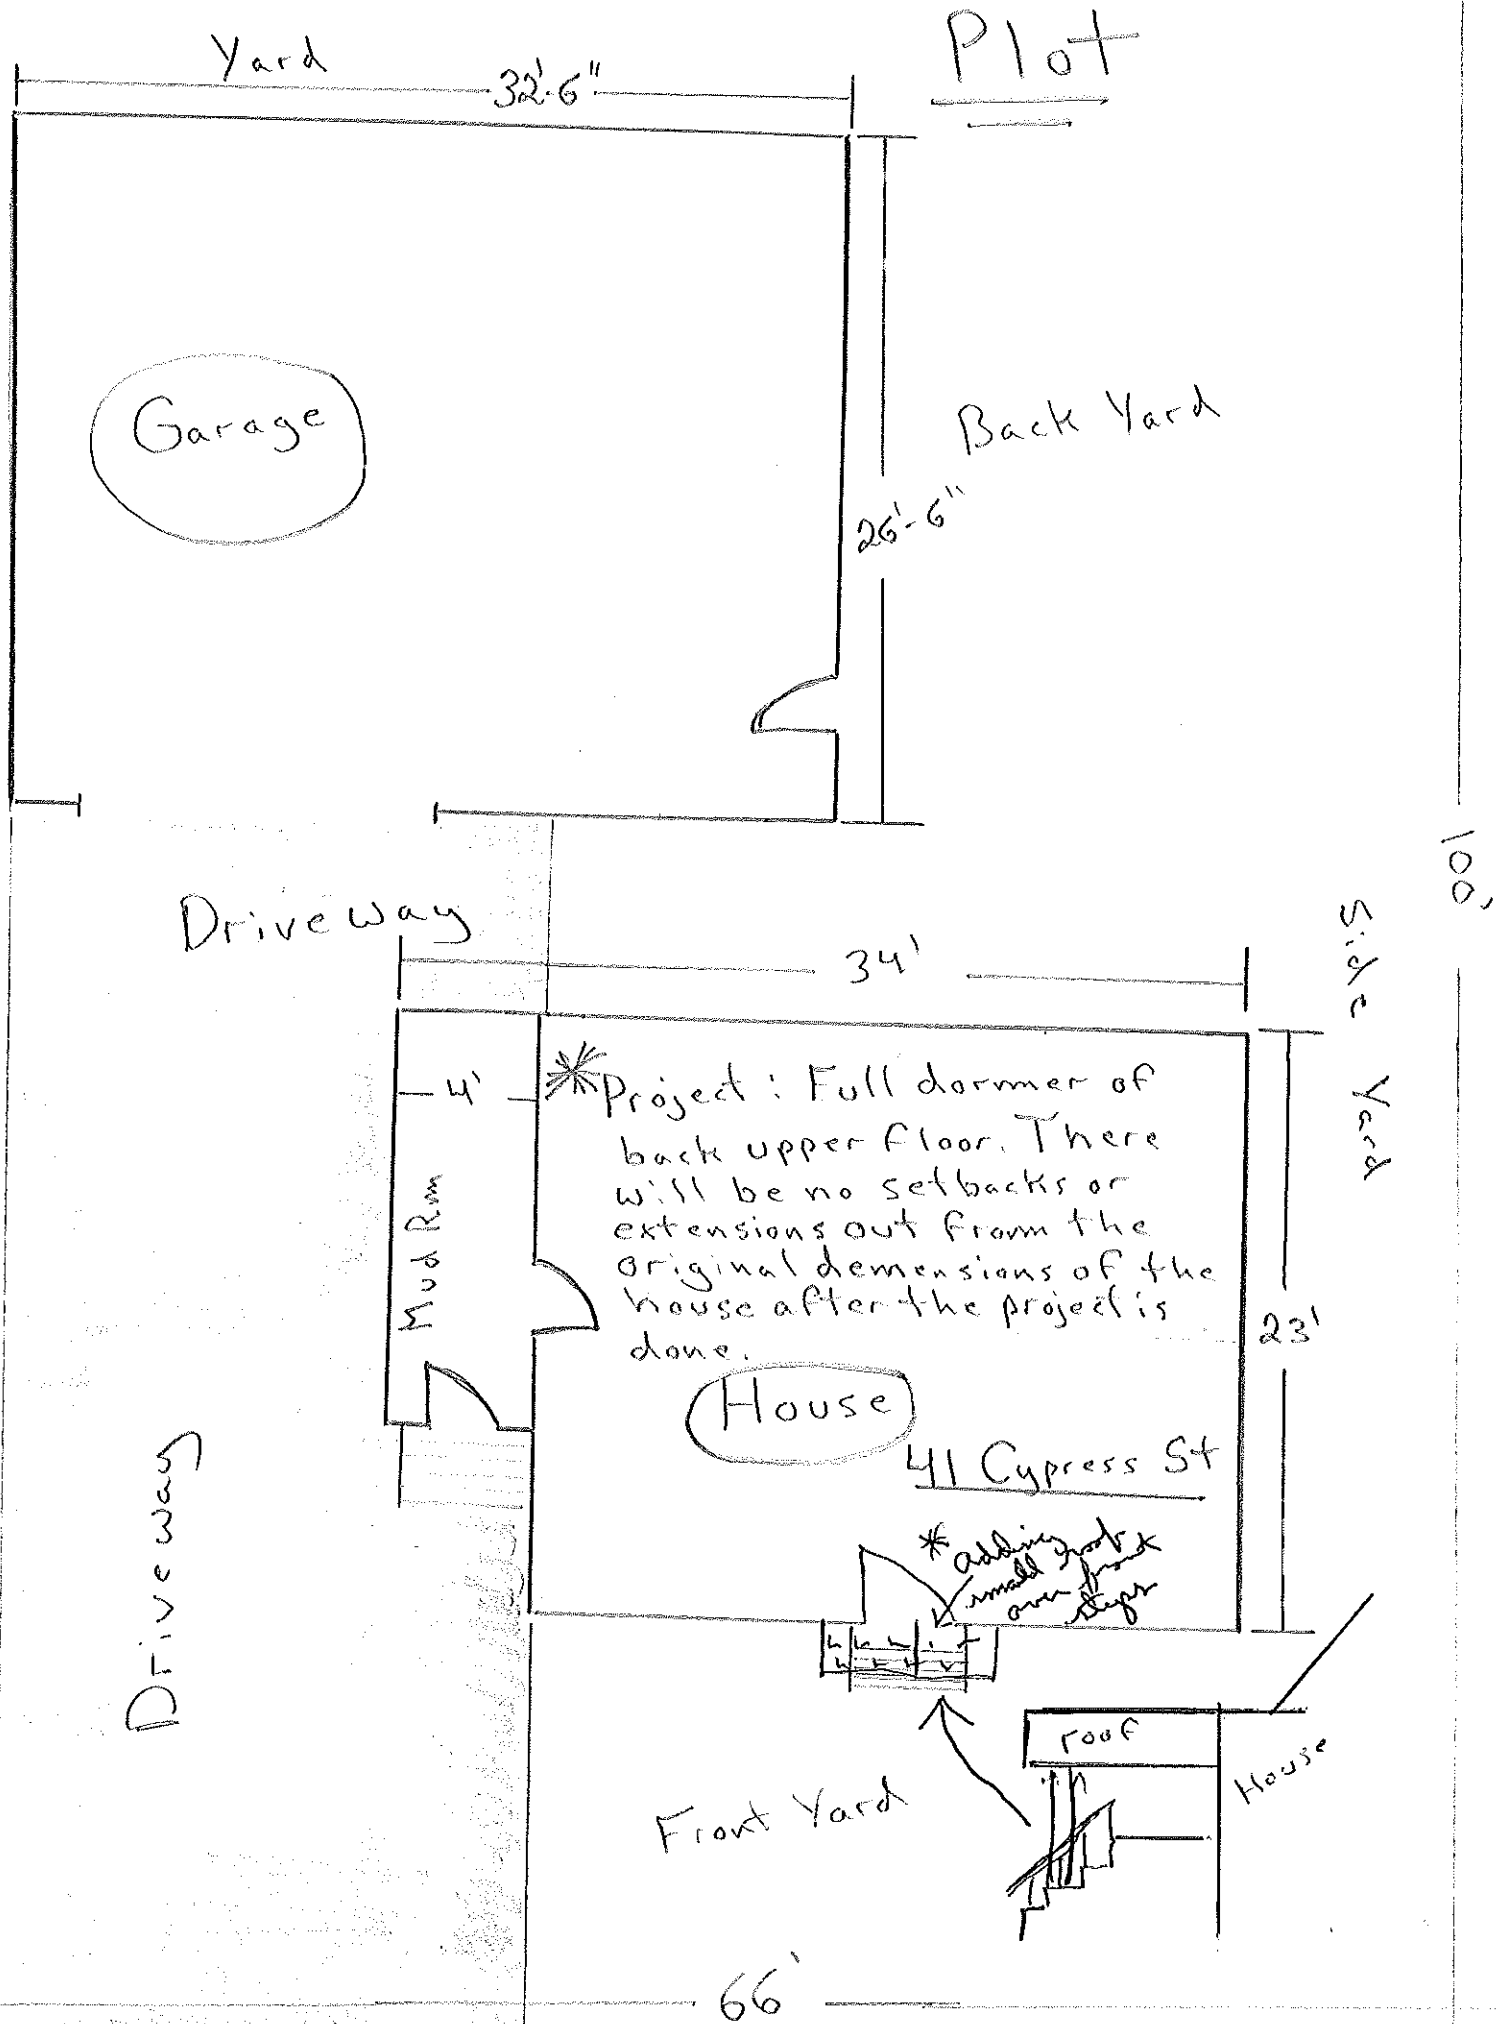 Plot
Yard
32'-6"
Garage
Back Yard
26'-6"
Driveway
34'
100'
Side Yard
4'
Mud Rm
* Project: Full dormer of
back upper floor. There
will be no setbacks or
extensions out from the
original demensions of the
house after the project is
done.
23'
House
41 Cypress St
Driveway
* adding
small roof
over front
steps
roof
House
Front Yard
66'